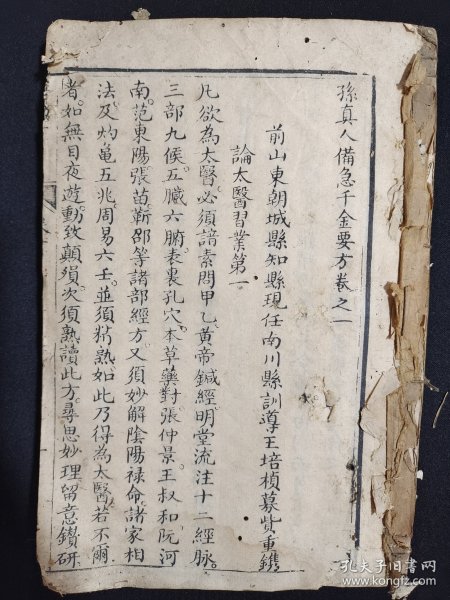 孫真人備急千金要方卷之一
前山東朝城縣知縣現任南川縣訓導王培楨募貲重鐫
論太醫習業第一
凡欲為太醫必須諳素問甲乙黃帝鍼經明堂流注十二經脉
三部九候五臟六腑表裏孔穴本草藥對張仲景王叔和阮河
南范東陽張苗靳邵等諸部經方又須妙解陰陽祿命諸家相
法及灼龜五兆周易六壬並須精熟如此乃得為太醫若不爾
者如無目夜遊動致顛殞次須熟讀此方尋思妙理留意鑽研
孔夫子旧书网
www.kongfz.com